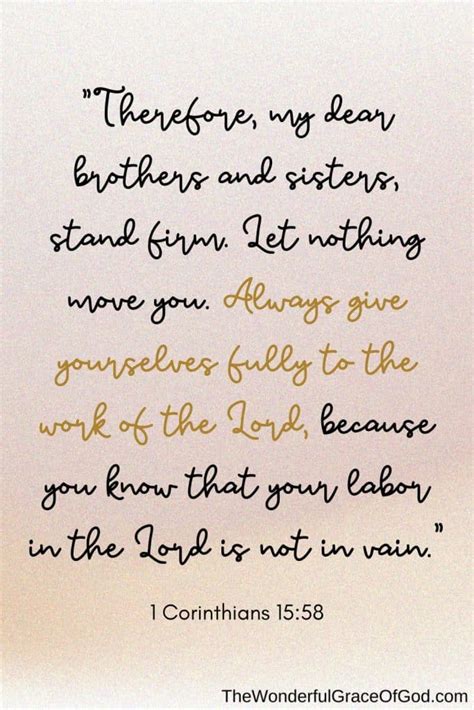 "Therefore, my dear
brothers and sisters,
stand firm. Let nothing
move you. Always give
yourselves fully to the
work of the Lord, because
you know that your labor
in the Lord is not in vain."
1 Corinthians 15:58
TheWonderfulGraceOfGod.com